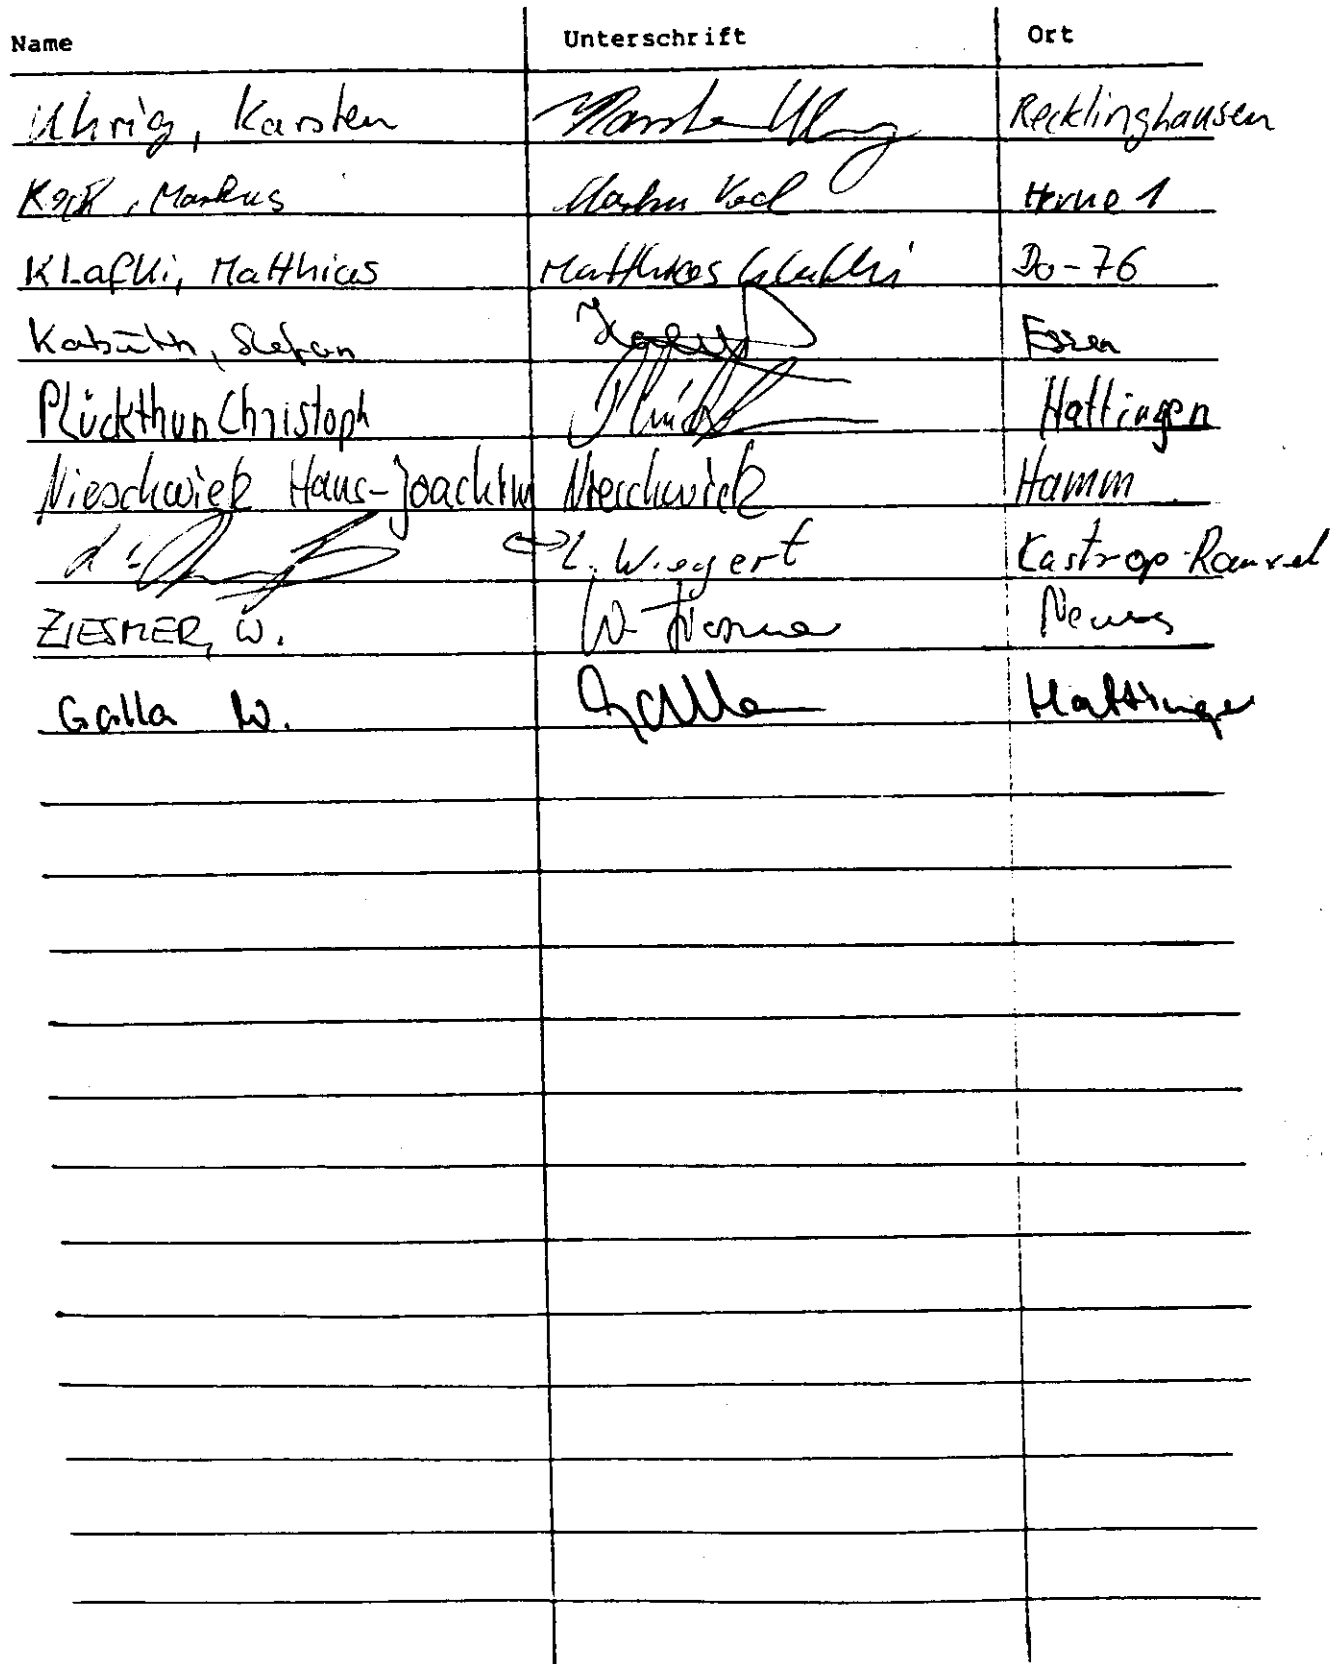 Name Unterschrift Ort
Uhrig, Karsten Karsten Uhrig Recklinghausen
Kock, Markus Markus Kock Herne 1
KLafki, Matthias Matthias Klafki Do-76
Kabüth, Stefan Essen
Plückthun Christoph Hattingen
Nieschwiek Hans-Joachim Nieschwiek Hamm
L. Wiegert Kastrop-Rauxel
ZIESMER, W. W. Ziesmer Neuss
Galla W. Galla Hattingen